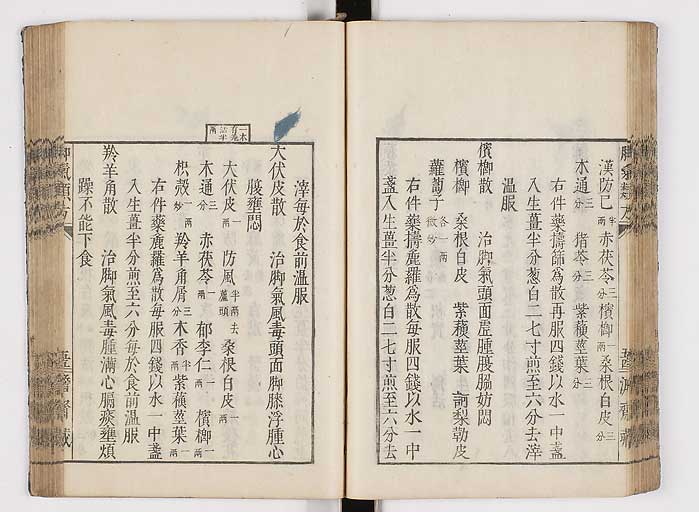 漢防已半兩 赤茯苓三分 檳榔一兩 桑根白皮三分
木通三分 猪苓三分 紫蘓莖葉二分
右件藥擣篩為散再服四錢以水一中盞
入生薑半分葱白二七寸煎至六分去滓
溫服
檳榔散 治脚氣頭面虛腫腹脇妨悶
檳榔 桑根白皮 紫蘓莖葉 訶梨勒皮
蘿蔔子各一兩微炒
右件藥擣麄羅為散每服四錢以水一中
盞入生薑半分葱白二七寸煎至六分去
滓每於食前溫服
大伏皮散 治脚氣風毒頭面脚膝浮腫心
腹壅悶
大伏皮一兩 防風半兩去蘆頭 桑根白皮一兩
木通三分 赤茯苓一兩 郁李仁一兩 檳榔一兩
枳殼一兩炒 羚羊角屑三分 木香半兩 紫蘓莖葉一兩
右件藥麄羅為散每服四錢以水一中盞
入生薑半分煎至六分每於食前溫服
羚羊角散 治脚氣風毒腫滿心膈痰壅煩
躁不能下食